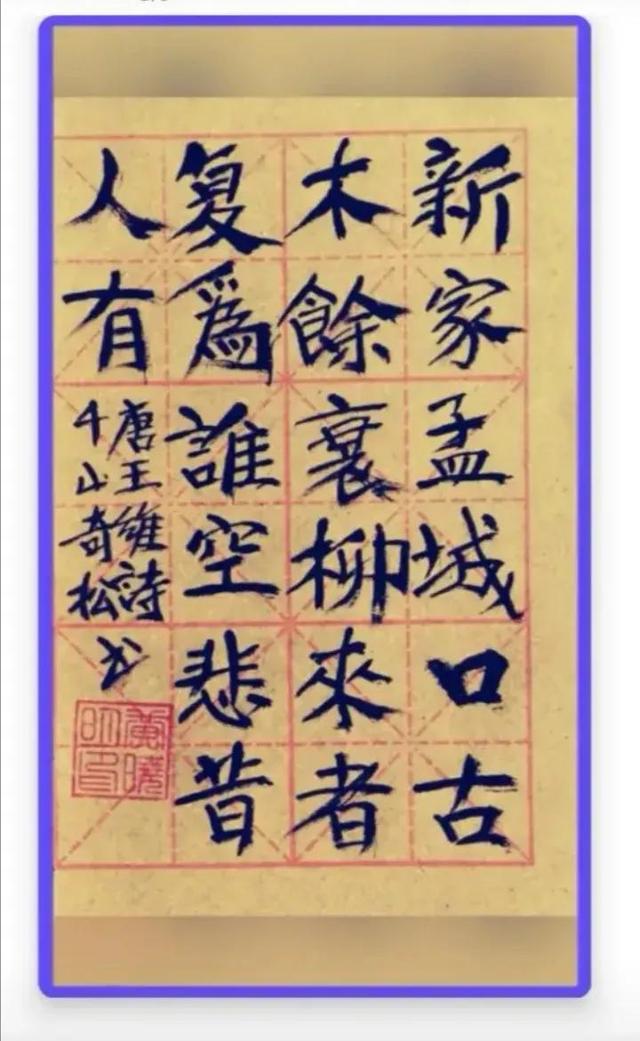 新家孟城口古
木餘衰柳來者
复爲誰空悲昔
人有
唐王維詩
千山奇松书
黄曉明印